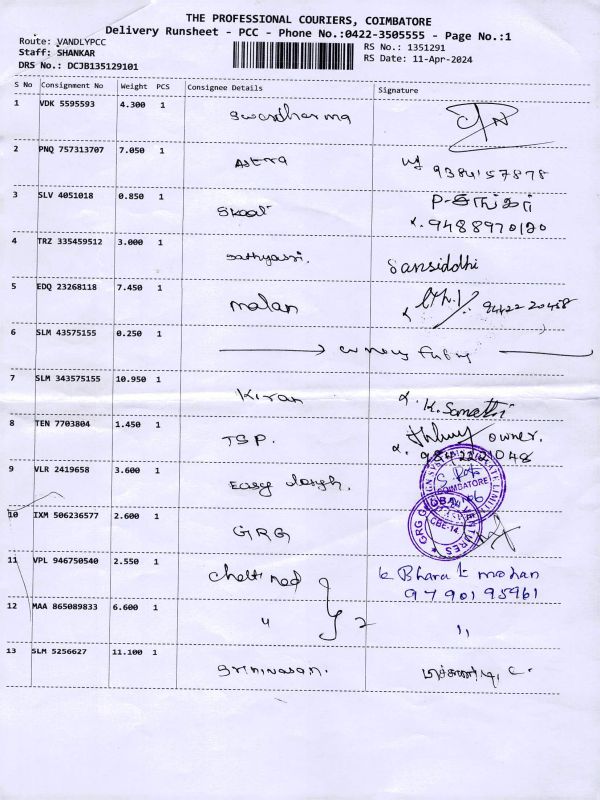 THE PROFESSIONAL COURIERS, COIMBATORE
Delivery Runsheet - PCC - Phone No.:0422-3505555 - Page No.:1
Route: VANDLYPCC
Staff: SHANKAR
DRS No.: DCJB135129101
RS No.: 1351291
RS Date: 11-Apr-2024
S No Consignment No Weight PCS Consignee Details Signature
1 VDK 5595593 4.300 1 Swardharma
2 PNQ 757313707 7.050 1 Astra 9384157878
3 SLV 4051018 0.850 1 Skool
9488970120
4 TRZ 335459512 3.000 1 Sathyasri. Sansiddhi
5 EDQ 23268118 7.450 1 malan 94422 20458
6 SLM 43575155 0.250 1
7 SLM 343575155 10.950 1 Kiran K. Somathi
8 TEN 7703804 1.450 1 TSP. owner.
9842221048
9 VLR 2419658 3.600 1 Easy
COIMBATORE
10 IXM 506236577 2.600 1 GRG
GRG GLOBAL VENTURES
CBE-14
11 VPL 946750540 2.550 1 Chettinad k Bharat mohan
97901 95961
12 MAA 865089833 6.600 1 " } 2 "
13 SLM 5256627 11.100 1 Srinivasan.